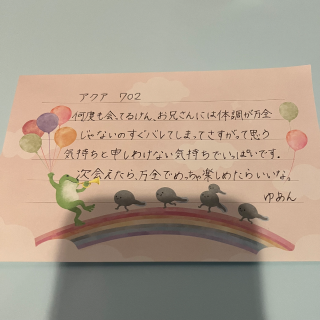 アクア 702
何度も会ってるけん、お兄さんには体調が万全
じゃないのすぐバレてしまってさすがって思う
気持ちと申しわけない気持ちでいっぱいです。
次会えたら、万全でめっちゃ楽しめたらいいな。
ゆあん